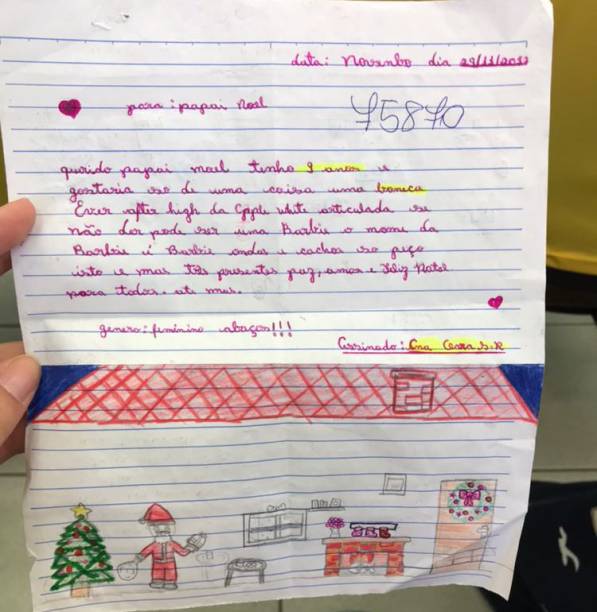 data: Novembo dia 29/11/20
para: papai Noel
75870
qurido papai moel tenho 9 anos e
gostaria so de uma coisa uma boneca
Ever after high da Apple white articulada se
não der pode ser uma Barbie o nome da
Barbie é Barbie ondas e cachos so peço
isto e mas três presentes paz, amor e Feliz Natal
para todos. ate mas.
genero: feminino abaços!!!
Assinado: Ana S.R